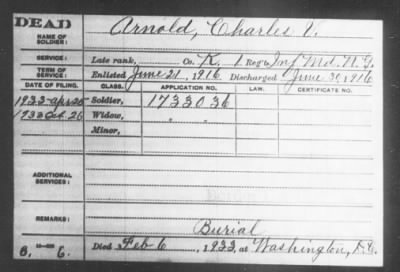 DEAD
NAME OF SOLDIER: Arnold, Charles V.
SERVICE: Late rank, Co. K. 1 Reg't Inf Md. N. G.
TERM OF SERVICE: Enlisted June 21, 1916 Discharged June 30, 1916
DATE OF FILING. CLASS. APPLICATION NO. LAW. CERTIFICATE NO.
1933-Apr 25 Soldier, 1733036
1933 Oct. 26 Widow, " "
Minor,
ADDITIONAL SERVICES:
REMARKS: Burial
Died Feb 6, 1933, at Washington, D.C.